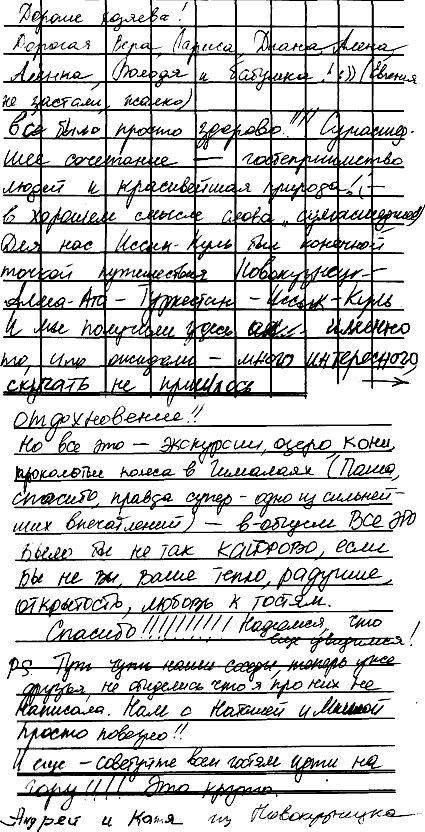 Дорогие хозяева!
Дорогая Вера, Лариса, Диана, Алёна,
Алёнка, Володя и бабулька! :)) (Евгения
не застали, жалко)
Всё было просто здорово!!!! Сумасшед-
шее сочетание — гостеприимство
людей и красивейшая природа! (–
в хорошем смысле слова „сумасшедшее")
Для нас Иссык-Куль был конечной
точкой путешествия Новокузнецк –
Алма-Ата – Туркестан – Иссык-Куль
И мы получили здесь именно
то, что ожидали – много интересного,
скучать не пришлось
отдохновение!!
Но все это — экскурсии, озеро, кони,
проколотые колеса в Гималаях (Паша,
спасибо, правда супер - одно из сильней-
ших впечатлений) — в-общем ВСЕ ЭТО
было бы не так КАЙФОВО, если
бы не вы, ваше тепло, радушие,
открытость, любовь к гостям.
Спасибо!!!!!!!!!! Надеемся, что
еще увидимся!
P.S. Тут чуть наши соседи, теперь уже
друзья, не обиделись что я про них не
написала. Нам с Наташей и Мишей
просто повезло!!
И еще – советуйте всем гостям идти на
гору!!!! Это круто.
Андрей и Катя из Новокузнецка